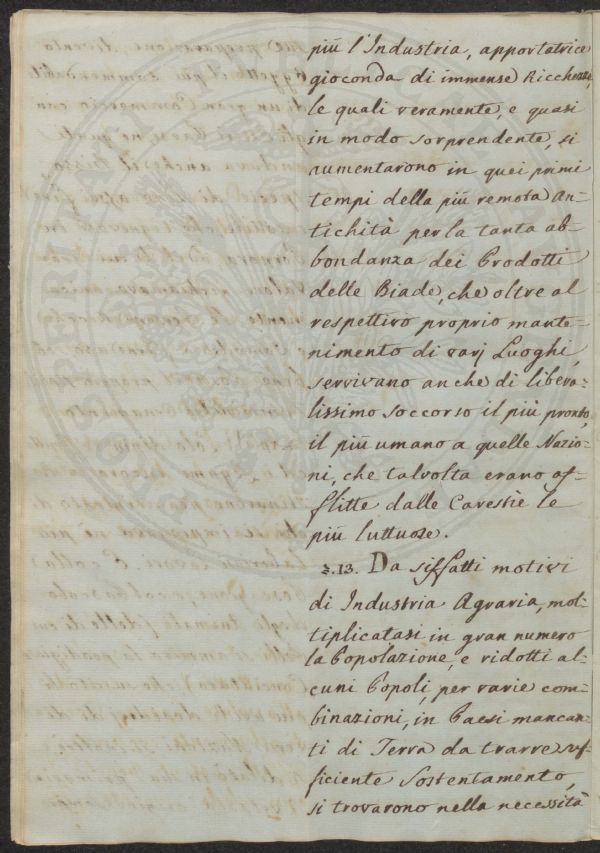 più l'Industria, apportatrice
gioconda di immense Ricchezze,
le quali veramente, e quasi
in modo sorprendente, si
aumentarono in quei primi
tempi della più remota An-
tichità per la tanta ab-
bondanza dei Prodotti
delle Biade, che oltre al
respettivo proprio mante-
nimento di varj Luoghi,
servivano anche di libera-
lissimo soccorso il più pronto,
il più umano a quelle Nazio-
ni, che talvolta erano af-
flitte dalle Carestie le
più luttuose.
§.13. Da siffatti motivi
di Industria Agraria, mol-
tiplicatasi in gran numero
la Popolazione, e ridotti al-
cuni Popoli, per varie com-
binazioni, in Paesi mancan-
ti di Terra da trarre suf-
ficiente Sostentamento,
si trovarono nella necessità